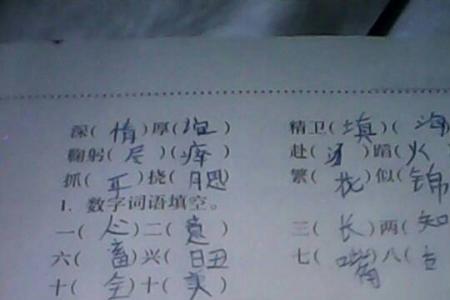 深(情)厚(谊) 精卫(填)(海
鞠躬(尽)(瘁) 赴( )蹈(火
抓(耳)挠(腮) 繁(花)似(锦
1. 数字词语填空。
一(心)二(意) 三(长)两(知
六(畜)兴(旺) 七(嘴)八(
十(全)十(美)